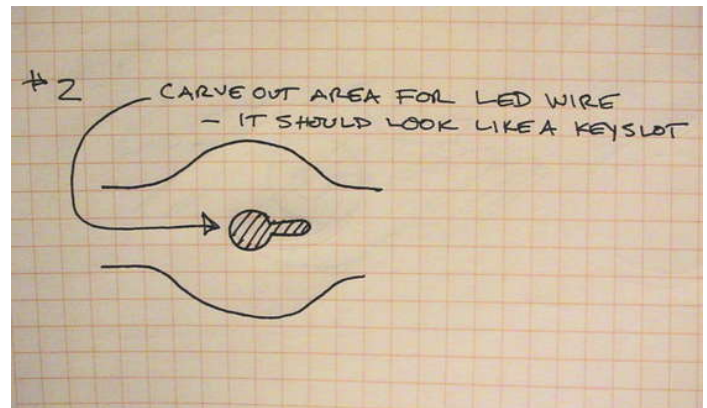 #2
CARVE OUT AREA FOR LED WIRE
- IT SHOULD LOOK LIKE A KEYSLOT